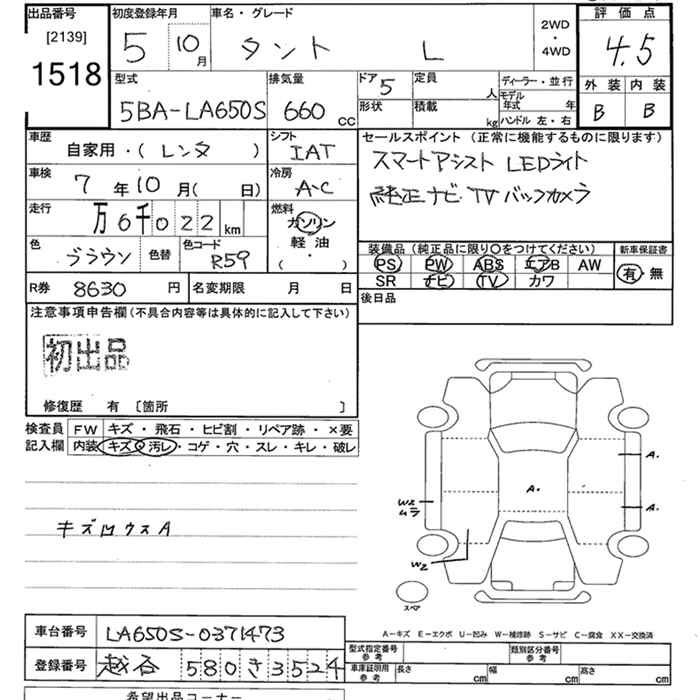 出品番号 初度登録年月 車名・グレード 評価点
[2139] 5 10月 タント L 2WD・4WD 4.5
1518
型式 排気量 ドア 5 定員 人 ディーラー・並行 外装 内装
5BA-LA650S 660cc 形状 積載 kg モデル年式 年 B B
ハンドル 左・右
車歴 シフト セールスポイント（正常に機能するものに限ります）
自家用・（レンタ） IAT スマートアシスト LEDライト
車検 冷房 純正ナビ TV バックカメラ
7年10月（ 日） A-C
走行 燃料
万6千022km ガソリン
軽油
（ ・ ）
色 色替 色コード 装備品（純正品に限り○をつけてください） 新車保証書
ブラウン R59 PS PW ABS エアB AW 有・無
SR ナビ TV カワ
R券 8630円 名変期限 月 日 後日品
注意事項申告欄（不具合内容等は具体的に記入して下さい）
初出品
修復歴 有 〔箇所 〕
検査員 FW キズ・飛石・ヒビ割・リペア跡・×要
記入欄 内装 キズ・汚レ・コゲ・穴・スレ・キレ・破レ
A.
A.
W3
ムラ
A.
キズ A
W2
スペア
A－キズ E－エクボ U－凹み W－補修跡 S－サビ C－腐食 XX－交換済
車台番号 LA650S-0371473
型式指定番号 参考 類別区分番号 参考
登録番号 越谷 580 き 3524
車庫証明用 参考 長さ cm 幅 cm 高さ cm
希望出品コーナー